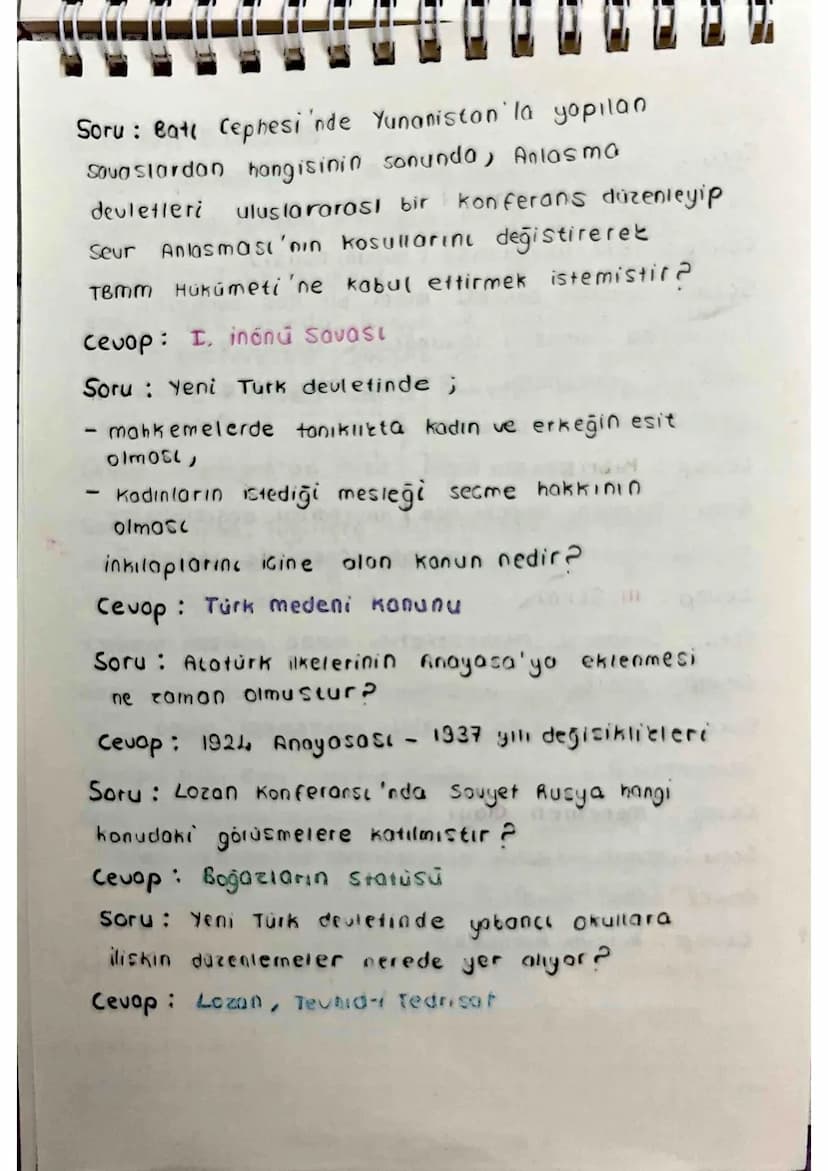 Soru : Batı Cephesi'nde Yunanistan'la yapılan
savaslardan hangisinin sonunda, Anlasma
devletleri uluslararası bir konferans düzenleyip
Sevr Anlasması'nın kosullarını değistirerek
TBMM Hükümeti'ne kabul ettirmek istemistir?
Cevap : I. inönü Savası
Soru : Yeni Türk devletinde ;
- mahkemelerde tanıklıkta kadın ve erkeğin esit
olması,
- Kadınların istediği mesleği secme hakkının
olması
inkılaplarını icine alan kanun nedir?
Cevap : Türk medeni kanunu
Soru : Atatürk ilkelerinin Anayasa'ya eklenmesi
ne zaman olmustur?
Cevap : 1924 Anayasası - 1937 yılı değisiklikleri
Soru : Lozan Konferansı'nda Sovyet Rusya hangi
konudaki görüsmelere katılmıstır?
Cevap : Boğazların statüsü
Soru : Yeni Türk devletinde yabancı okullara
iliskin düzenlemeler nerede yer alıyor?
Cevap : Lozan, Tevhid-i Tedrisat